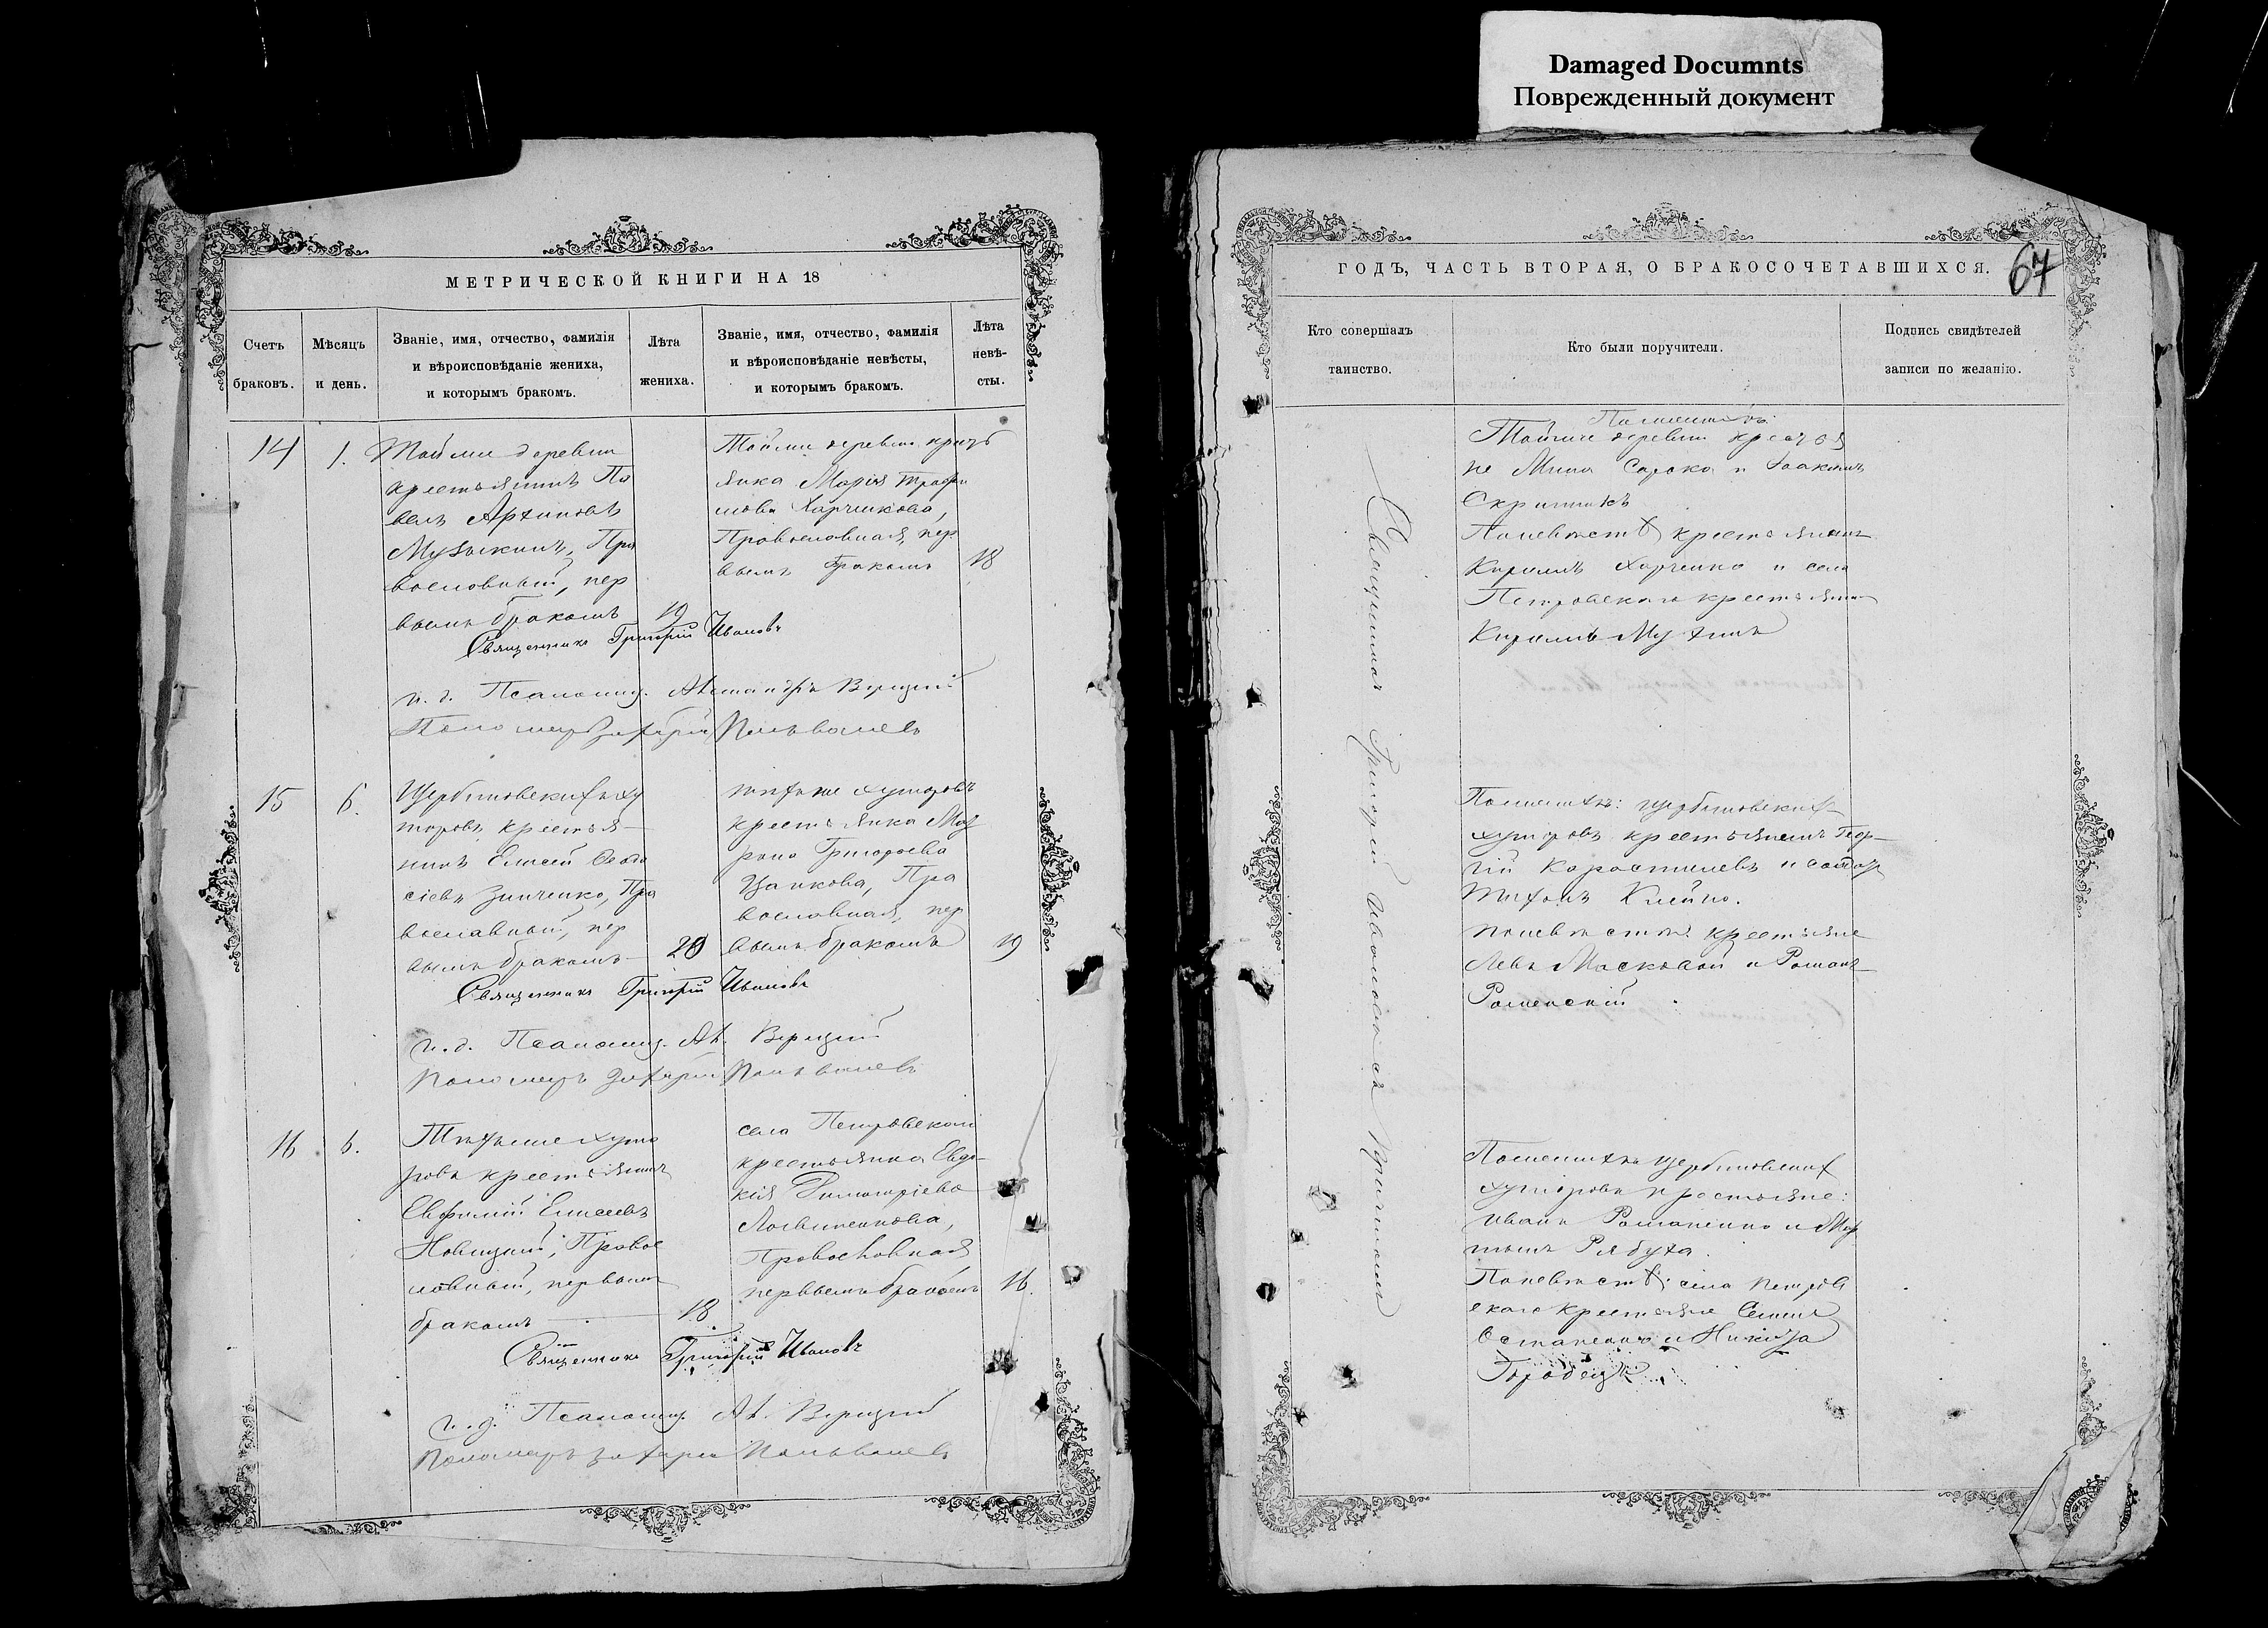 Damaged Documnts
Поврежденный документ
МЕТРИЧЕСКОЙ КНИГИ НА 18
Счетъ браковъ.
Мѣсяцъ и день.
Званіе, имя, отчество, фамилія и вѣроисповѣданіе жениха, и которымъ бракомъ.
Лѣта жениха.
Званіе, имя, отчество, фамилія и вѣроисповѣданіе невѣсты, и которымъ бракомъ.
Лѣта невѣ-сты.
14
1.
Тойже деревни
крестьянинъ Па
велъ Архиповъ
Музыкинъ, Пра
вославный, пер
вымъ бракомъ
19
Тойже деревни крест
янка Марія Трофи
мова Харченкова,
Православная, пер
вымъ бракомъ
18
Священникъ Григорій Ивановъ
и. д. Псаломщ. Верицкій
Пономарь Захарій
15
6.
Щербиновскихъ ху
торовъ крестья-
нинъ Елисей
Зинченко, Пра
вославный, пер
вымъ бракомъ
20
тѣхже хуторовъ
крестьянка Мат
рона Григорьева
Цапкова, Пра
вославная, пер
вымъ бракомъ
19
Священникъ Григорій Ивановъ
и. д. Псаломщ. Ал. Верицкій
Пономарь Захарій
16
6.
Тѣхъже хуто
ровъ крестьянинъ
Евфимій Елисеевъ
Новицкій, Правос
лавный, первымъ
бракомъ
18
села Петровскаго
крестьянка Евдо-
кія
Логвиненкова,
Православная
первымъ бракомъ
16.
Священникъ Григорій Ивановъ
и. д. Псаломщ. Ал. Верицкій
Пономарь Захарій
ГОДЪ, ЧАСТЬ ВТОРАЯ, О БРАКОСОЧЕТАВШИХСЯ.
67
Кто совершалъ таинство.
Кто были поручители.
Подпись свидѣтелей записи по желанію.
Священникъ Григорій Ивановъ съ Причтомъ
По женихѣ:
Тойже деревни крестья
не Мина Сорока и Іоакимъ
Скрипникъ
По невѣстѣ крестьянинъ
Кириллъ Харченко и села
Петровскаго крестьянинъ
Кириллъ
По женихѣ: Щербиновскихъ
хуторовъ крестьянинъ Геор-
гій Коростилевъ и
Тихонъ
По невѣстѣ: крестьяне
Левъ Московой и Романъ
Роменскій
По женихѣ Щербиновскихъ
хуторовъ крестьяне:
Иванъ Романенко и Мар
тынъ Рябуха.
По невѣстѣ: села Петров
скаго крестьяне Семенъ
Остапенко и Никита
Городецкій